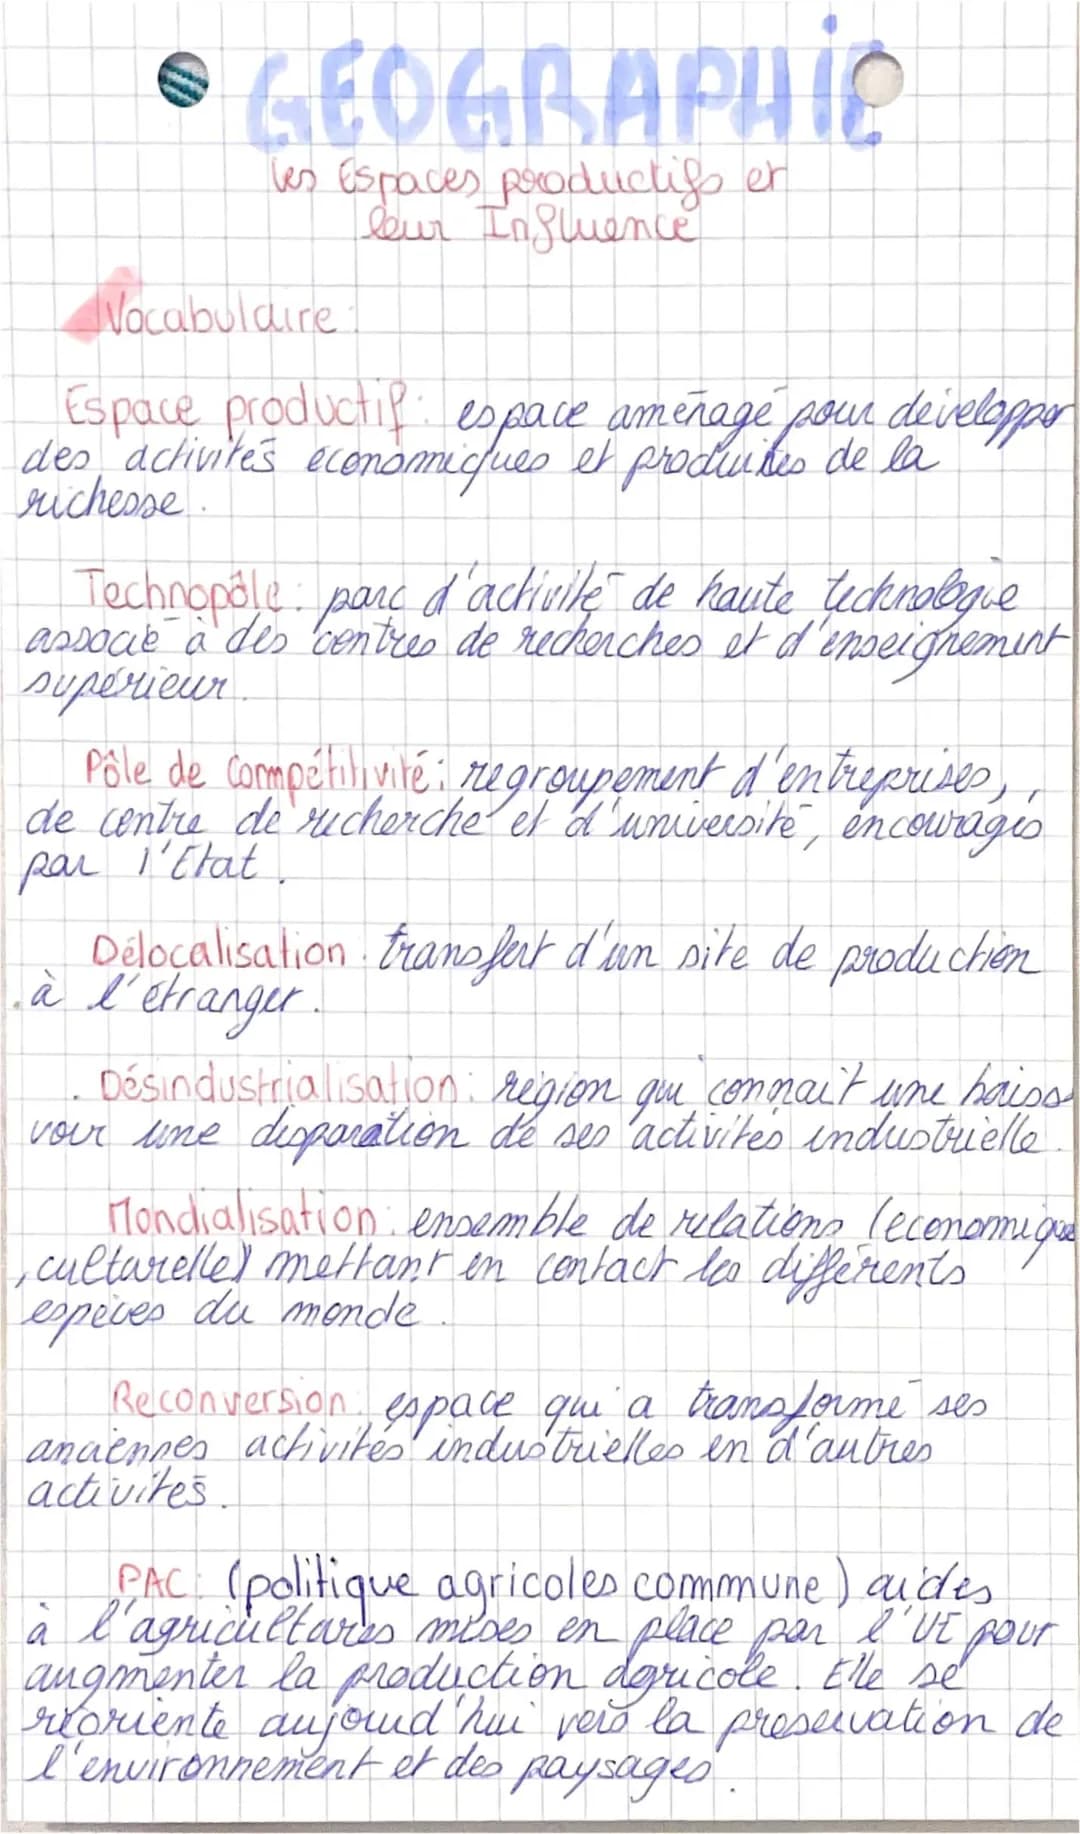 GEOGRAPHiE
les Espaces productifs et
leur Influence
Vocabulaire:
Espace productif: espace aménagé pour développer
des activités économiques et produites de la
richesse.
Technopôle: parc d'activité de haute technologie
associé à des centres de recherches et d'enseignement
supérieur.
Pôle de Compétitivité: regroupement d'entreprises,,
de centre de recherche et d'université, encouragés
par l'Etat.
Délocalisation: transfert d'un site de production
à l'étranger.
Désindustrialisation: région qui connait une baiss
voir une disparation de ses activités industrielle.
Mondialisation: ensemble de relations (economique
, culturelle) mettant en contact les différents
espèces du monde.
Reconversion: espace qui a transformé ses
anciennes activités industrielles en d'autres
activités.
PAC: (politique agricoles commmune) aides
à l'agricultures mises en place par l'UE pour
augmenter la production agricole. Elle se
réoriente aujourd'hui vers la preservation de
l'environnement et des paysages.